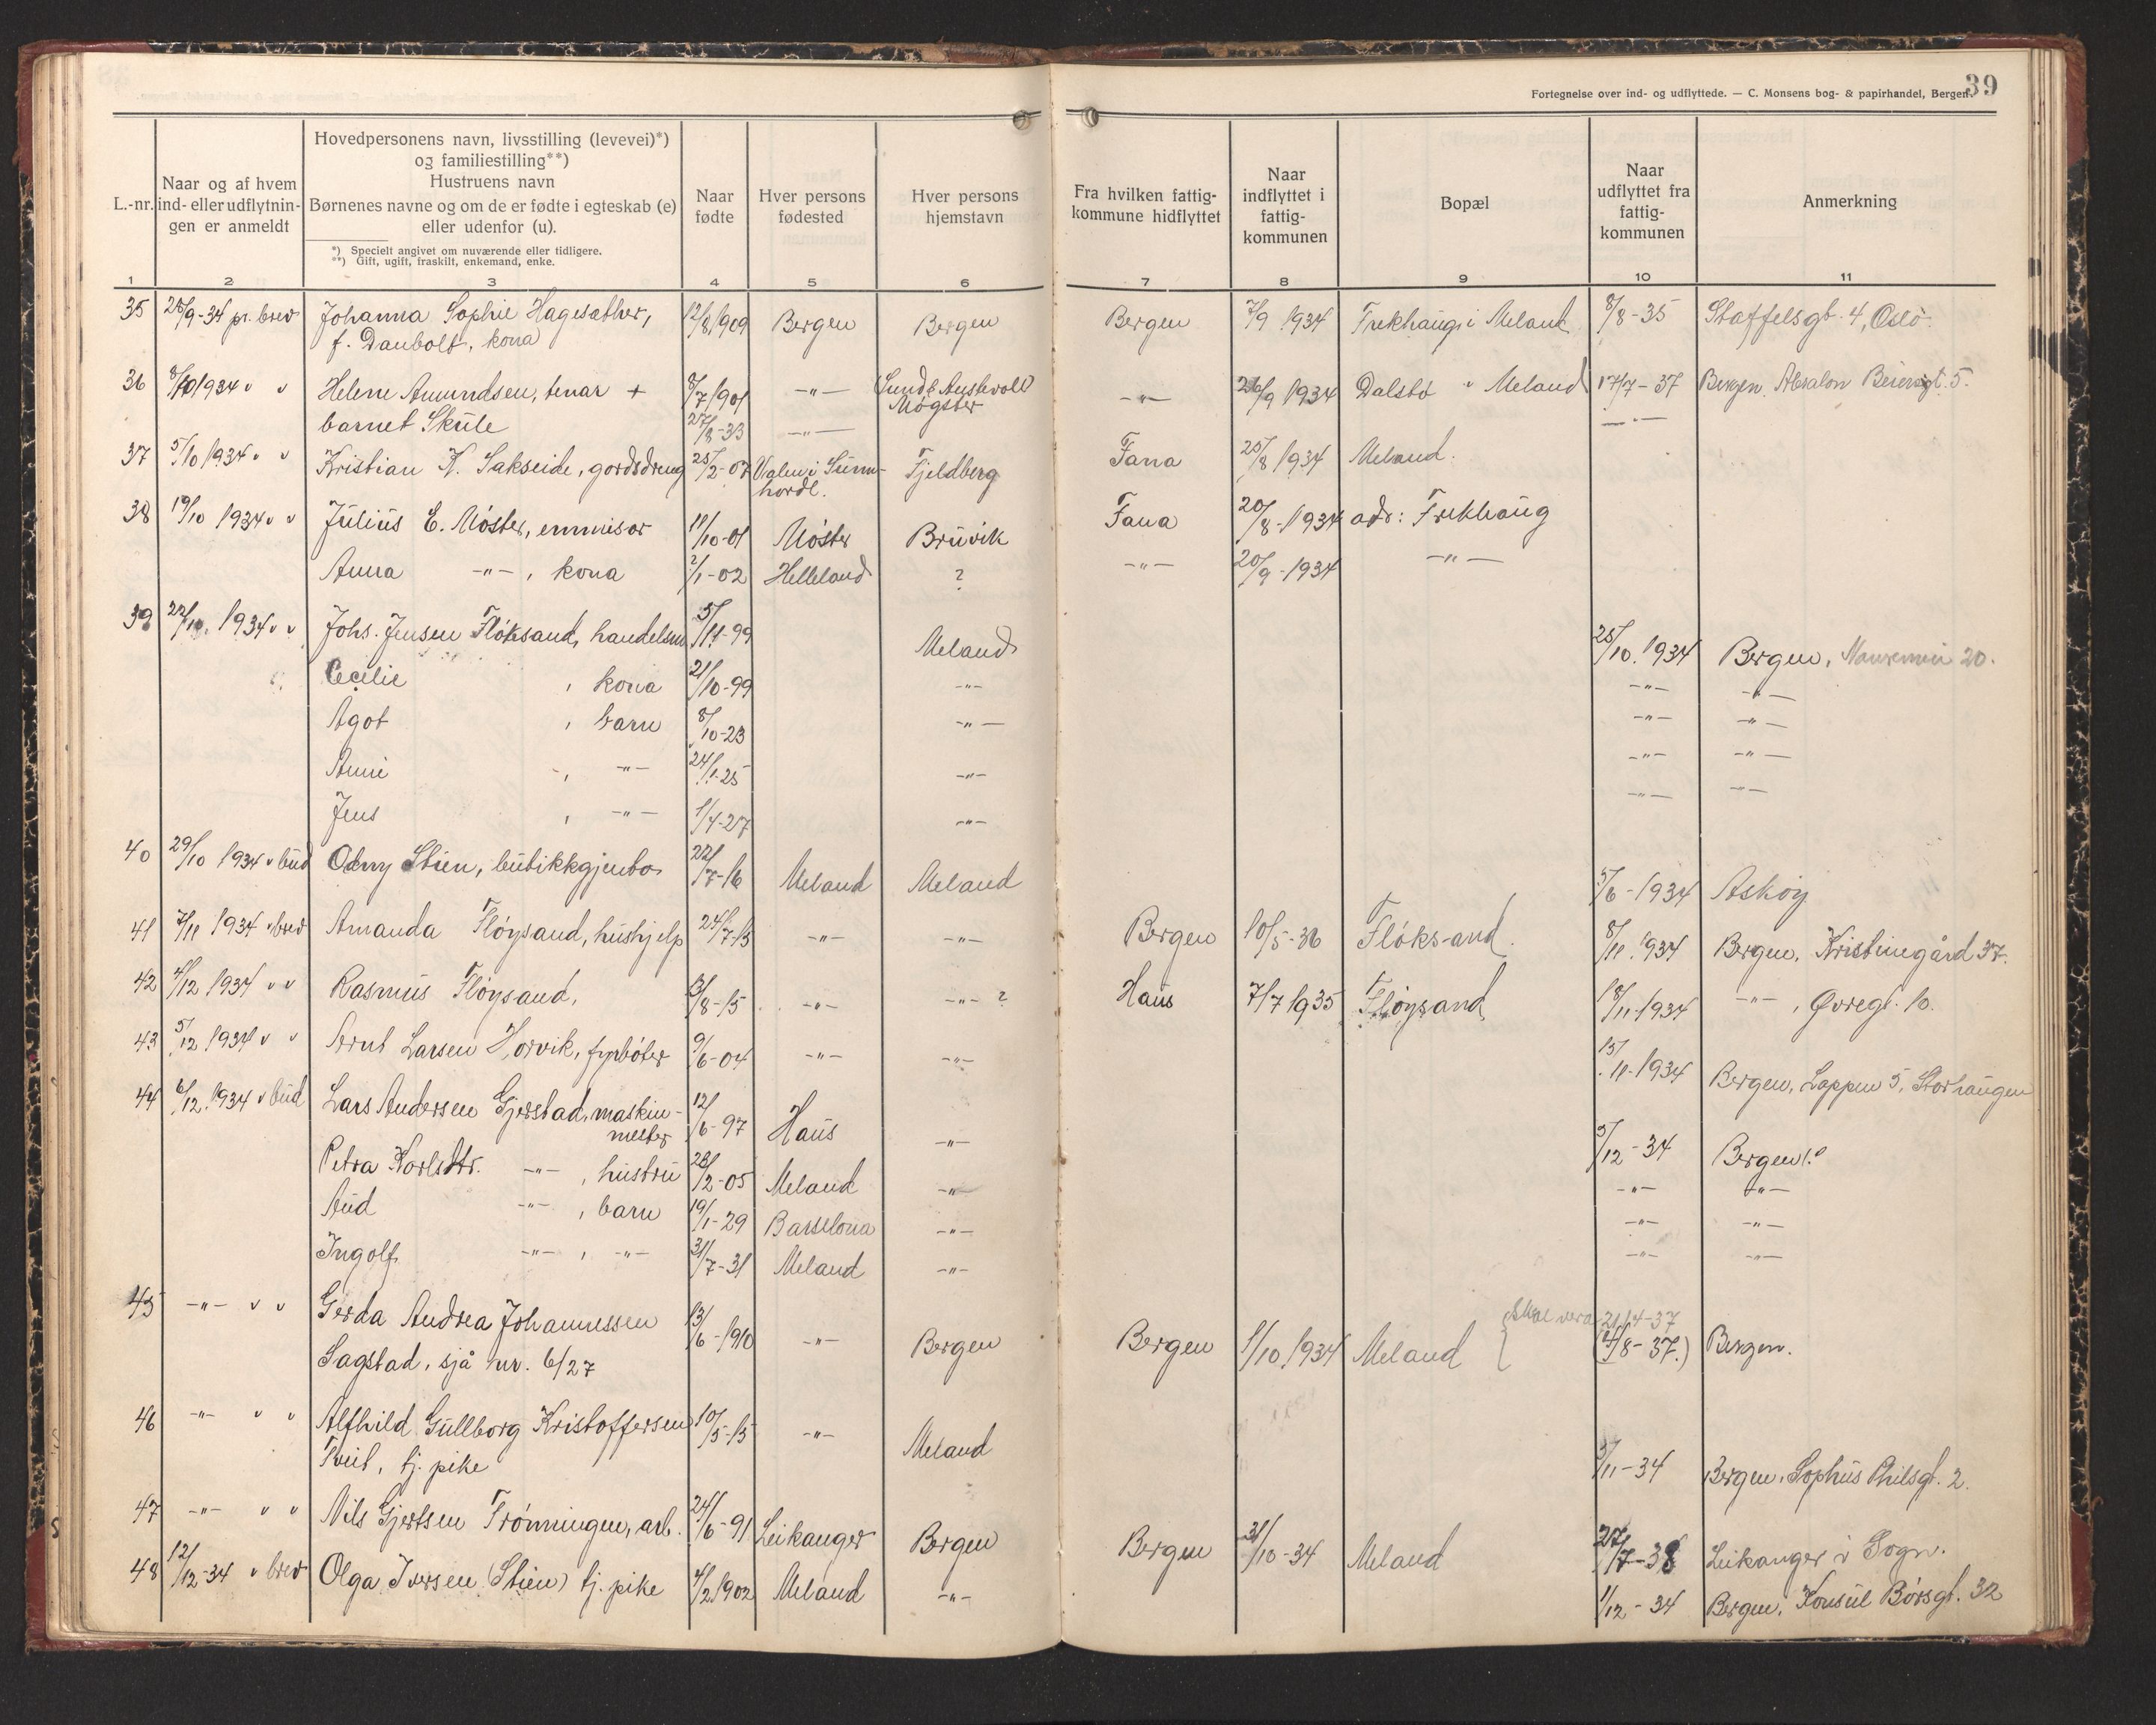 39
Fortegnelse over ind- og udflyttede. — C. Monsens bog- & papirhandel, Bergen.
L.-nr. | Naar og af hvem ind- eller udflytningen er anmeldt | Hovedpersonens navn, livsstilling (levevei)*) og familiestilling**) Hustruens navn Børnenes navne og om de er fødte i egteskab (e) eller udenfor (u). | Naar fødte | Hver persons fødested | Hver persons hjemstavn | Fra hvilken fattigkommune hidflyttet | Naar indflyttet i fattigkommunen | Bopæl | Naar udflyttet fra fattigkommunen | Anmerkning
*) Specielt angivet om nuværende eller tidligere.
**) Gift, ugift, fraskilt, enkemand, enke.
1 2 3 4 5 6 7 8 9 10 11
35 28/9-34 pr. brev Johanna Sophie Hagesæther, 12/8 1909 Bergen Bergen Bergen 7/9 1934 Frekhaug i Meland 8/8-35 Staffelsgt. 4, Oslo.
f. Danbolt, kona
36 8/10 1934 " " Helene Amundsen, tenar + 8/7 1901 -"- (Sund & Austevoll) -"- 26/9 1934 Dalstø " Meland 17/7-37 Bergen. Absalon Beiersgt. 5.
Møgster
barnet Skule 27/8-33 -"- -"-
37 5/10 1934 " " Kristian K. Sakseide, gordsdreng 25/2-07 Valen i Sunn- Fjeldberg Fana 25/8 1934 Meland.
hordl.
38 19/10 1934 " " Julius E. Møster, emmisær 11/10-01 Møster Bruvik Fana 20/8-1934 adr: Frekhaug
Anna -"-, kona 2/1-02 Helleland ? -"- 20/9-1934 -"-
39 22/10. 1934 " " Johs. Jensen Fløksand, handelsm 5/11-99 Meland 25/10. 1934 Bergen, 20.
Cecilie , kona 21/10-99 -"- -"- -"-
Ågot , barn 8/10-23 -"- -"- -"-
Anni , -"- 24/1-25 -"- -"- -"-
Jens , -"- 1/4-27 -"- -"- -"-
40 29/10 1934 " bud Odny Stien, butikkgjenta 22/7-16 Meland Meland 5/6-1934 Askøy
41 7/11 1934 " brev Amanda Fløysand, hushjelp 24/7-15 -"- -"- Bergen 10/5-36 Fløksand. 8/11. 1934 Bergen, Kristinegård 37.
42 4/12 1934 " " Rasmus Fløysand, 3/8-15 -"- -"- ? Haus 7/7 1935 Fløysand 18/11-1934 -"-, Øvregt. 10.
43 5/12 1934 " " Arnt Larsen Horvik, fyrbøter 9/6-04 -"- -"- 15/11-1934 Bergen, Lappen 5, Storhaugen
44 6/12. 1934 " bud Lars Andersen Gjerstad, maskin- 12/6-97 Haus -"- 5/12-34 Bergen!
mester
Petra Karlsdtr. -"-, hustru 28/2-05 Meland -"- -"- -"-
Aud -"-, barn 19/1-29 Barselona -"- -"- -"-
Ingolf -"-, -"- 31/7-31 Meland -"- -"- -"-
45 -"- " " Gerda Andrea Johannessen 13/6-1910 -"- Bergen Bergen 1/10. 1934 Meland { Skal vera 21/4-37
Sagstad, sjå nr. 6/27 (4/8-37.) Bergen.
46 -"- " " Alfhild Gullborg Kristoffersen 10/5-15 -"- Meland 5/11-34 Bergen, Sophus Philsgt. 2.
Tveit, tj. pike
47 -"- " " Nils Gjertsen Frønningen, arb. 24/6-91 Leikanger Bergen Bergen 31/10-34 Meland 27/7-38 Leikanger i Sogn.
48 12/12-34 " brev Olga Iversen (Stien) tj. pike 4/2 1902 Meland -"- 1/12-34 Bergen, Konsul Børsgt. 32